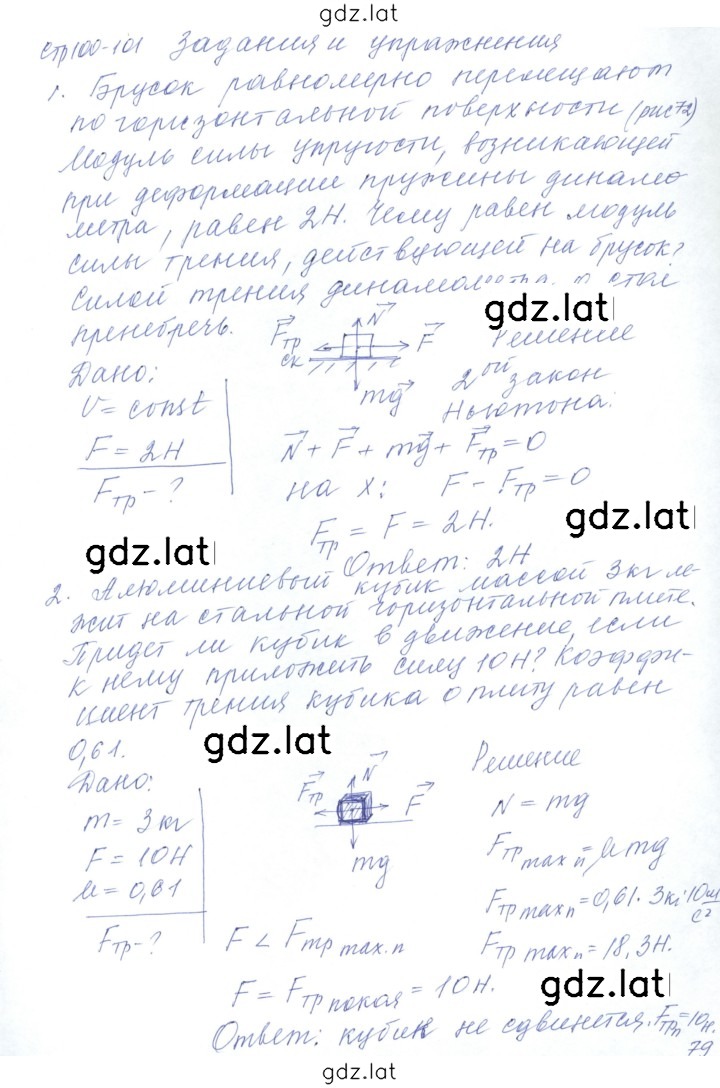 gdz.lat
стр100-101 Задания и упражнения
1. Брусок равномерно перемещают
по горизонтальной поверхности (рис 72)
Модуль силы упругости, возникающей
при деформации пружины динамо-
метра, равен 2Н. Чему равен модуль
силы трения, действующей на брусок?
Силой трения динамометра о стол
gdz.lat
пренебречь.
N
Fтр
F
ск
mg
Решение
Дано:
2ой закон
Ньютона:
V = const
F = 2Н
Fтр - ?
N + F + mg + Fтр = 0
на x: F - Fтр = 0
Fтр = F = 2Н.
gdz.lat
gdz.lat
Ответ: 2Н
2. Алюминиевый кубик массой 3 кг ле-
жит на стальной горизонтальной плите.
Придет ли кубик в движение, если
к нему приложить силу 10Н? Коэффи-
циент трения кубика о плиту равен
0,61.
gdz.lat
Дано:
N
Fтр
F
mg
Решение
m = 3 кг
F = 10Н
μ = 0,61
Fтр - ?
N = mg
Fтр max п = μ mg
Fтр max п = 0,61 · 3кг · 10 м/с²
Fтр max п = 18,3Н.
F < Fтр max. п
F = Fтр покоя = 10Н.
gdz.lat
Ответ: кубик не сдвинется. Fтрп = 10Н.
79
gdz.lat